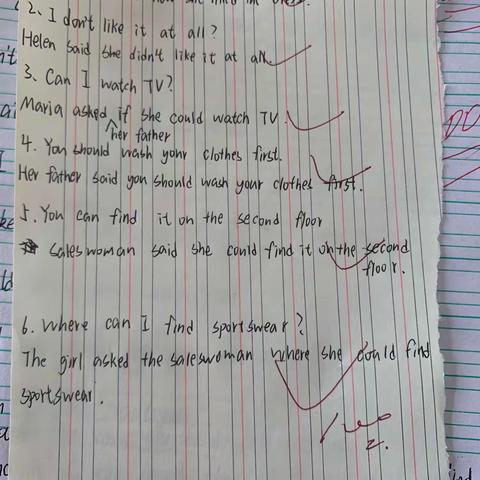 2. I don't like it at all?
Helen said she didn't like it at all.
3. Can I watch TV?
Maria asked if she could watch TV.
her father
4. You should wash your clothes first.
Her father said you should wash your clothes first.
5. You can find it on the second floor
saleswoman said she could find it on the second
floor.
6. Where can I find sportswear?
The girl asked the saleswoman where she could find
sportswear.